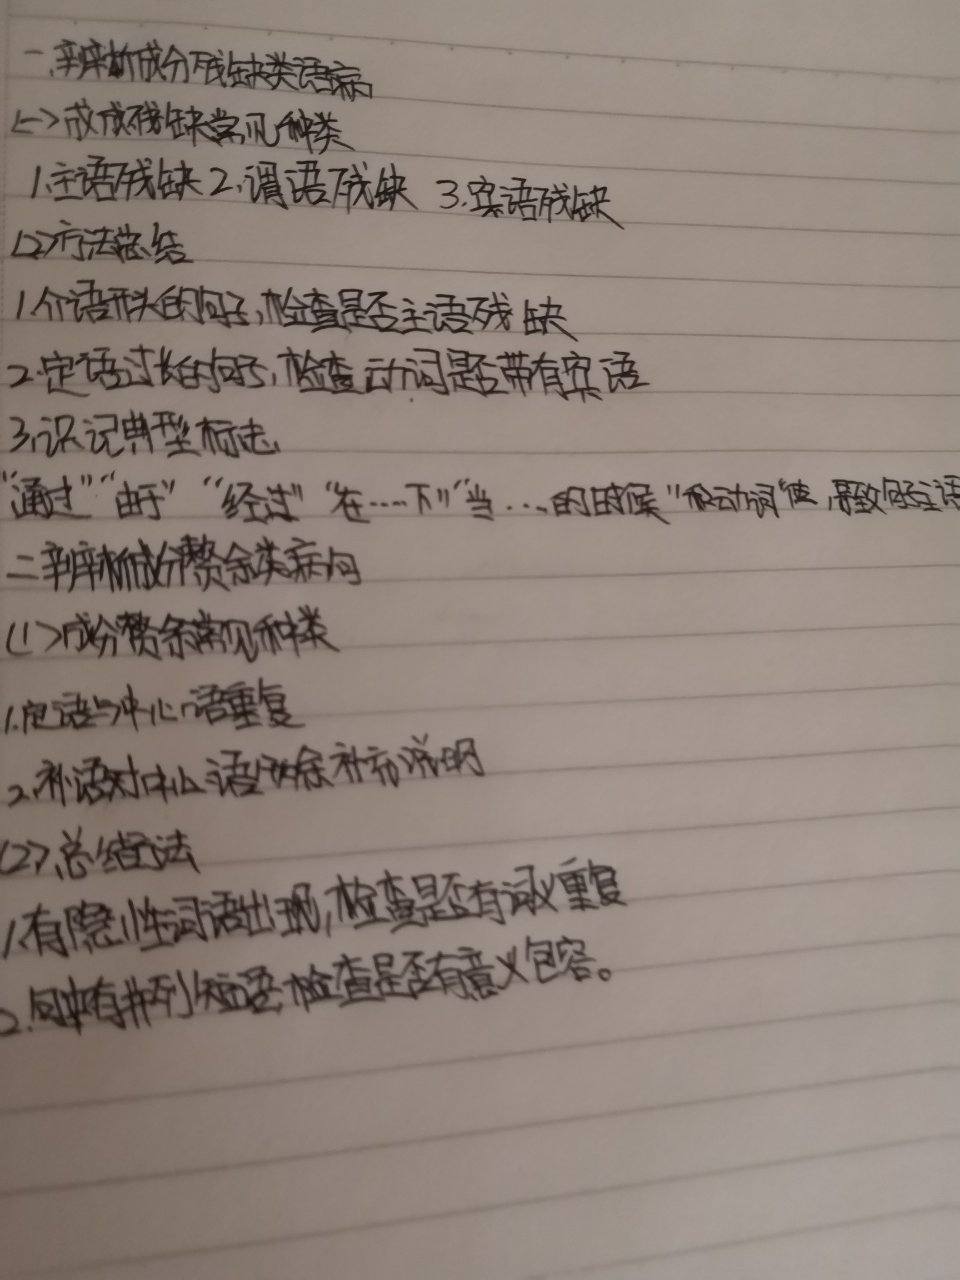 一.辨析成分残缺类语病
(一)成残缺常见种类
1.主语残缺 2.谓语残缺 3.宾语残缺
(2)方法总结
1.介语开头的句子,检查是否主语残缺
2.定语过长的句子,检查动词是否带有宾语
3.识记典型标志
"通过""由于" "经过" "在……下""当…的时候" 动词"使,导致 主语
二.辨析成分赘余类病句
(1)成分赘余常见种类
1.定语与中心语重复
2.补语对中心语 余补充说明
(2)总结方法
1.有隐性词语出现,检查是否有词义重复
2.句中有并列短语,检查是否有意义包容。